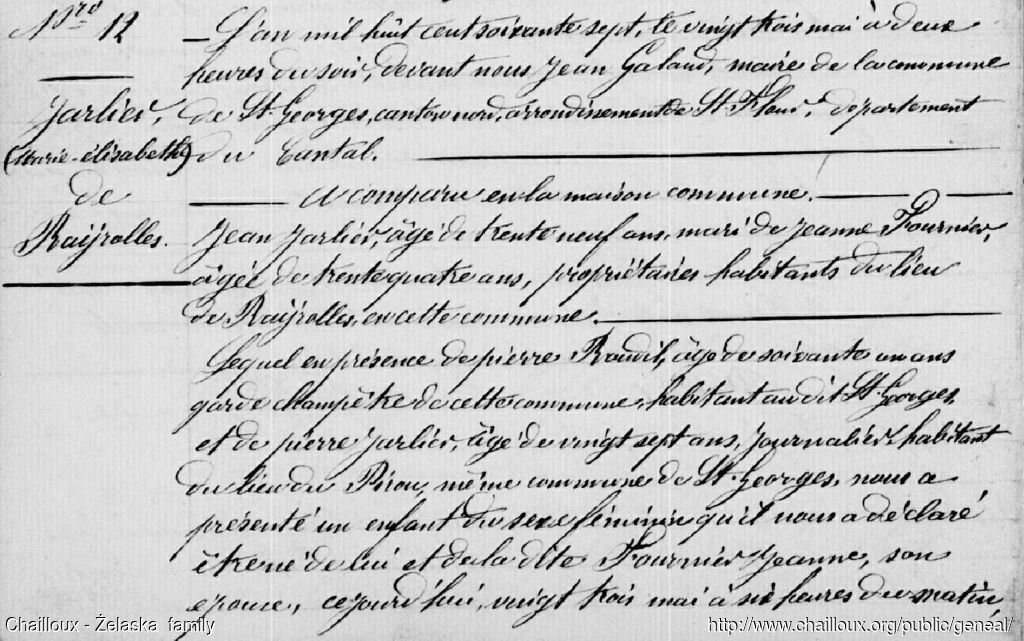 Nro 12
Jarlier,
(Marie-élisabeth)
de
Raijrolles.
L'an mil huit cent soixante sept, le vingt trois mai à deux
heures du soir, devant nous Jean Galaud, maire de la commune
de St. Georges, canton nord, arrondissement de St. Flour, département
du Cantal.
A comparu en la maison commune.
Jean Jarlier, âgé de trente neuf ans, mari de Jeanne Fournier,
âgée de trente quatre ans, propriétaires habitants du lieu
de Raijrolles, en cette commune.
Lequel en présence de pierre Raudil, âgé de soixante un ans
garde champêtre de cette commune, habitant au dit St. Georges,
et de pierre Jarlier, âgé de vingt sept ans, journalier, habitant
du lieu du Pirou, même commune de St. Georges, nous a
présenté un enfant du sexe féminin qu'il nous a déclaré
être né de lui et de la dite Fournier Jeanne, son
epouse, cejourd'hui, vingt trois mai à six heures du matin,
Chailloux - Żelaska family
http://www.chailloux.org/public/geneal/